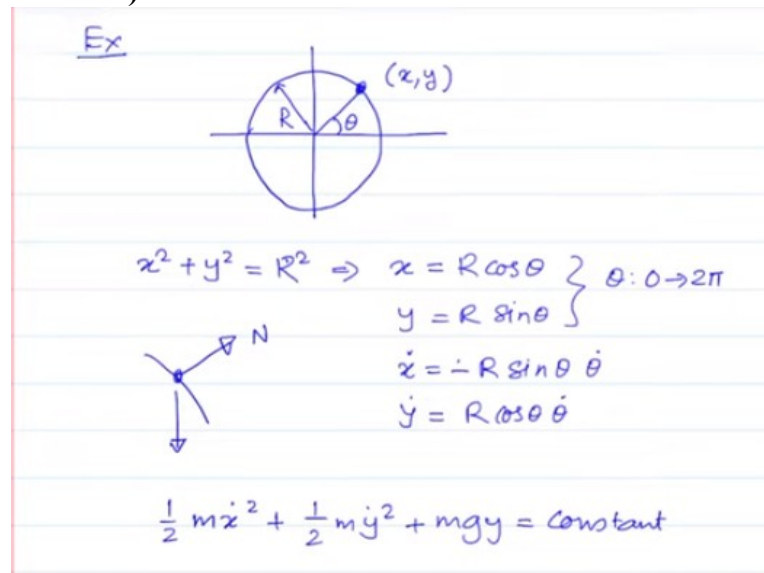 Ex
(x,y)
R θ
x² + y² = R² ⇒ x = R cosθ } θ : 0→2π
y = R sinθ
N
ẋ = - R sinθ θ̇
ẏ = R cosθ θ̇
½ mẋ² + ½ mẏ² + mgy = constant